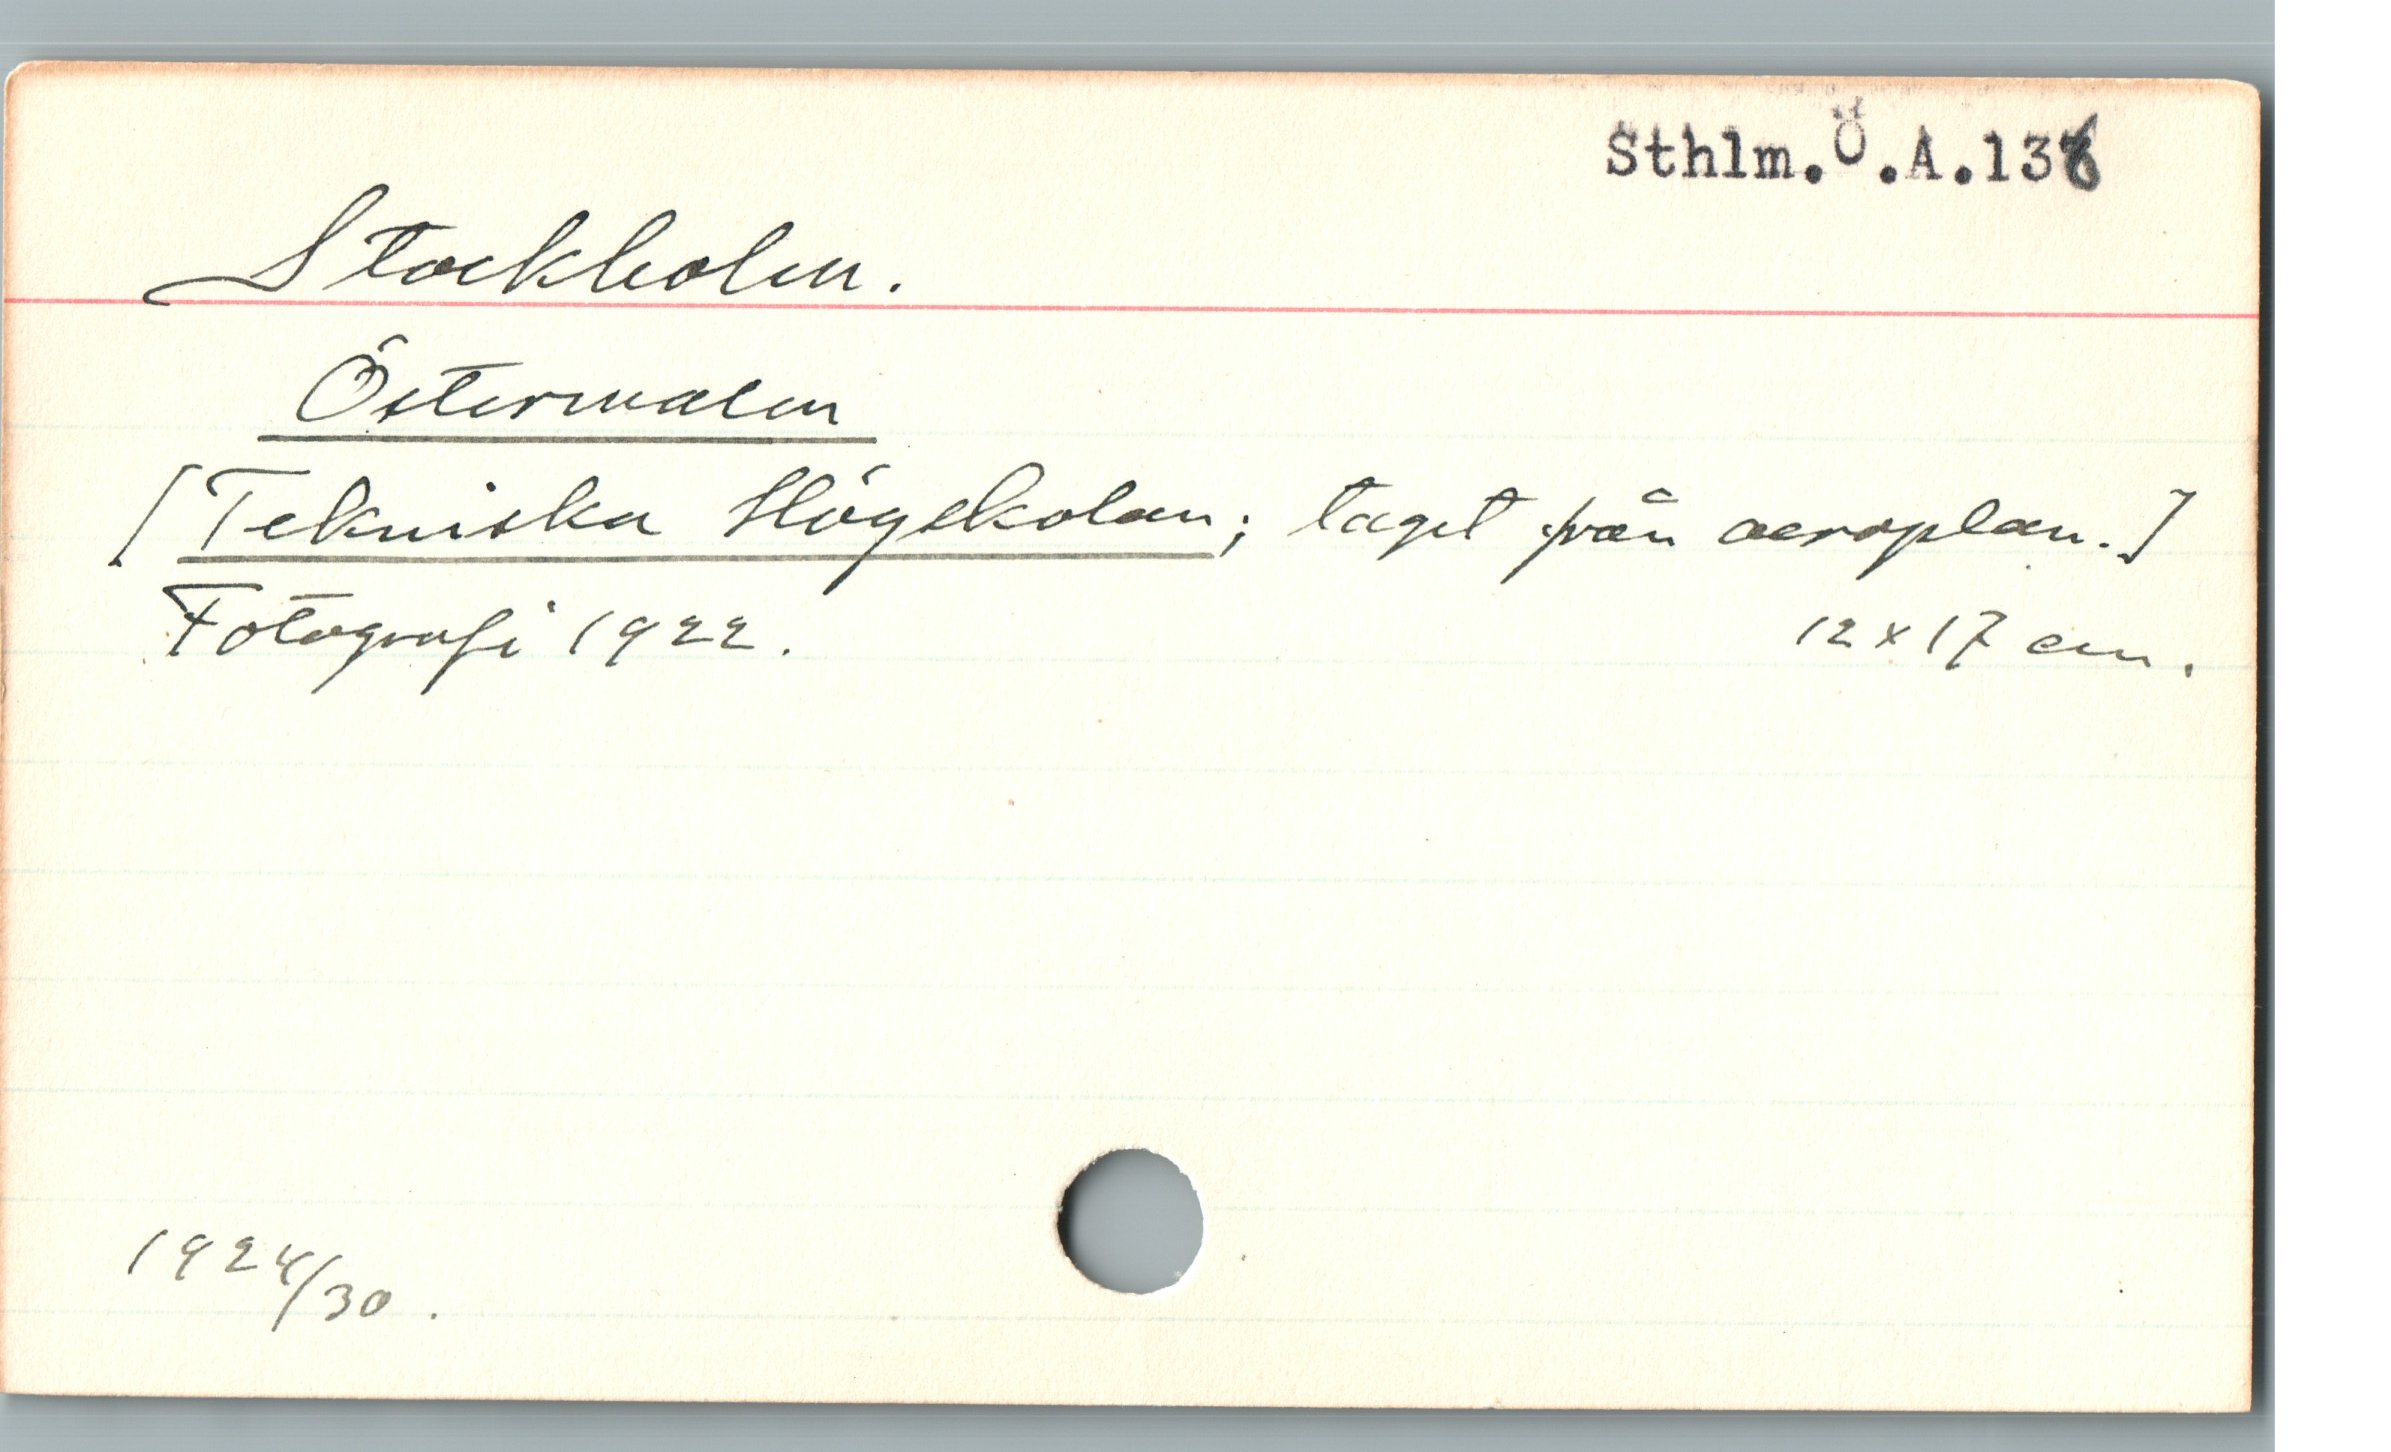 Sthlm.Ö.A.136
Stockholm.
Östermalm
[Tekniska Högskolan; taget från aeroplan.]
Fotografi 1922. 12 x 17 cm.
1924/30.